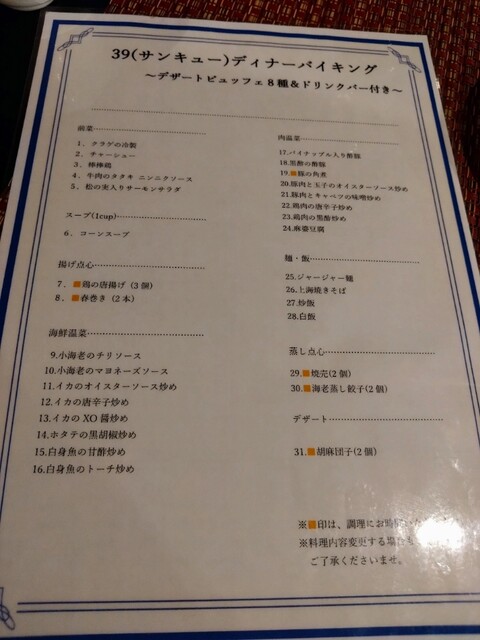 39(サンキュー)ディナーバイキング
～デザートビュッフェ8種&ドリンクバー付き～
前菜
1. クラゲの冷製
2. チャーシュー
3. 棒棒鶏
4. 牛肉のタタキ ニンニクソース
5. 松の実入りサーモンサラダ
スープ(1cup)
6. コーンスープ
揚げ点心
7. ■鶏の唐揚げ (3個)
8. ■春巻き (2本)
海鮮温菜
9.小海老のチリソース
10.小海老のマヨネーズソース
11.イカのオイスターソース炒め
12.イカの唐辛子炒め
13.イカのXO醤炒め
14.ホタテの黒胡椒炒め
15.白身魚の甘酢炒め
16.白身魚のトーチ炒め
肉温菜
17.パイナップル入り酢豚
18.黒酢の酢豚
19.■豚の角煮
20.豚肉と玉子のオイスターソース炒め
21.豚肉とキャベツの味噌炒め
22.鶏肉の唐辛子炒め
23.鶏肉の黒酢炒め
24.麻婆豆腐
麺・飯
25.ジャージャー麺
26.上海焼きそば
27.炒飯
28.白飯
蒸し点心
29.■焼売(2個)
30.■海老蒸し餃子(2個)
デザート
31.■胡麻団子(2個)
※■印は、調理にお時間
※料理内容変更する場合
ご了承くださいませ。